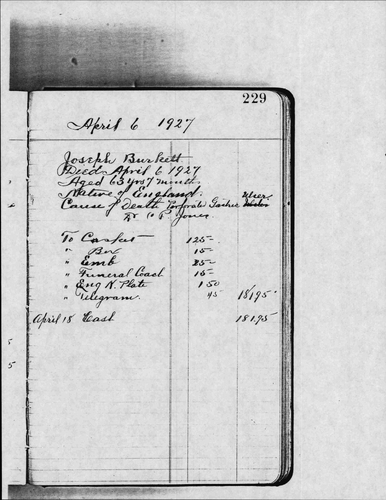 229
April 6 1927
Joseph Burkett
Died April 6 1927
Aged 63 yrs 7 months
Native of England.
Cause of death Perforated Gastric Ulcer
Dr O P Jones
To Casket 125-
" Box 15-
" Emb 25-
" Funeral Coach 15-
" Eng N. Plate 1 50
" Telegram. 45 181 95
April 18 Cash 181 95